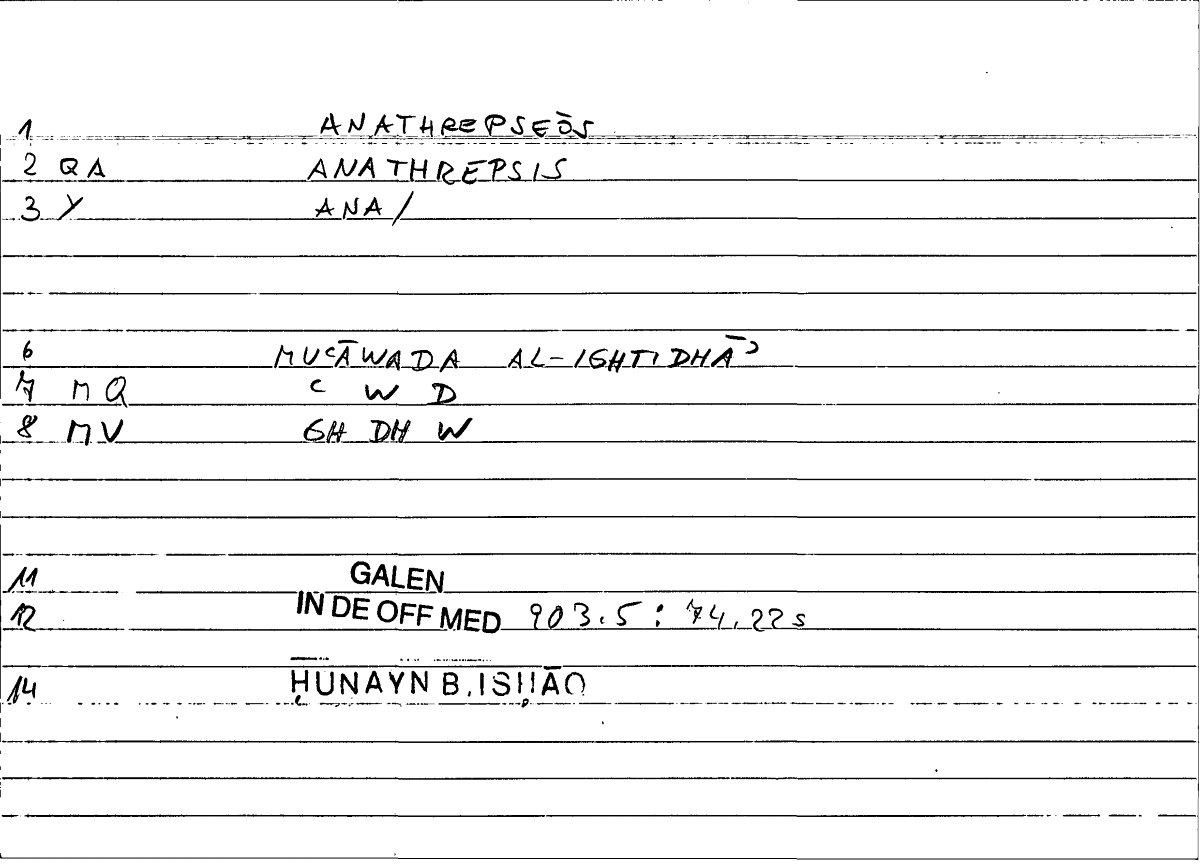 1 ANATHREPSEŌS
2 QA ANATHREPSIS
3 Y ANA/
6 MUʿĀWADA AL-IGHTIDHĀʾ
7 MQ ʿ W D
8 MV GH DH W
11 GALEN
12 IN DE OFF MED 903.5 : 74.22s
14 ḤUNAYN B. ISḤĀQ